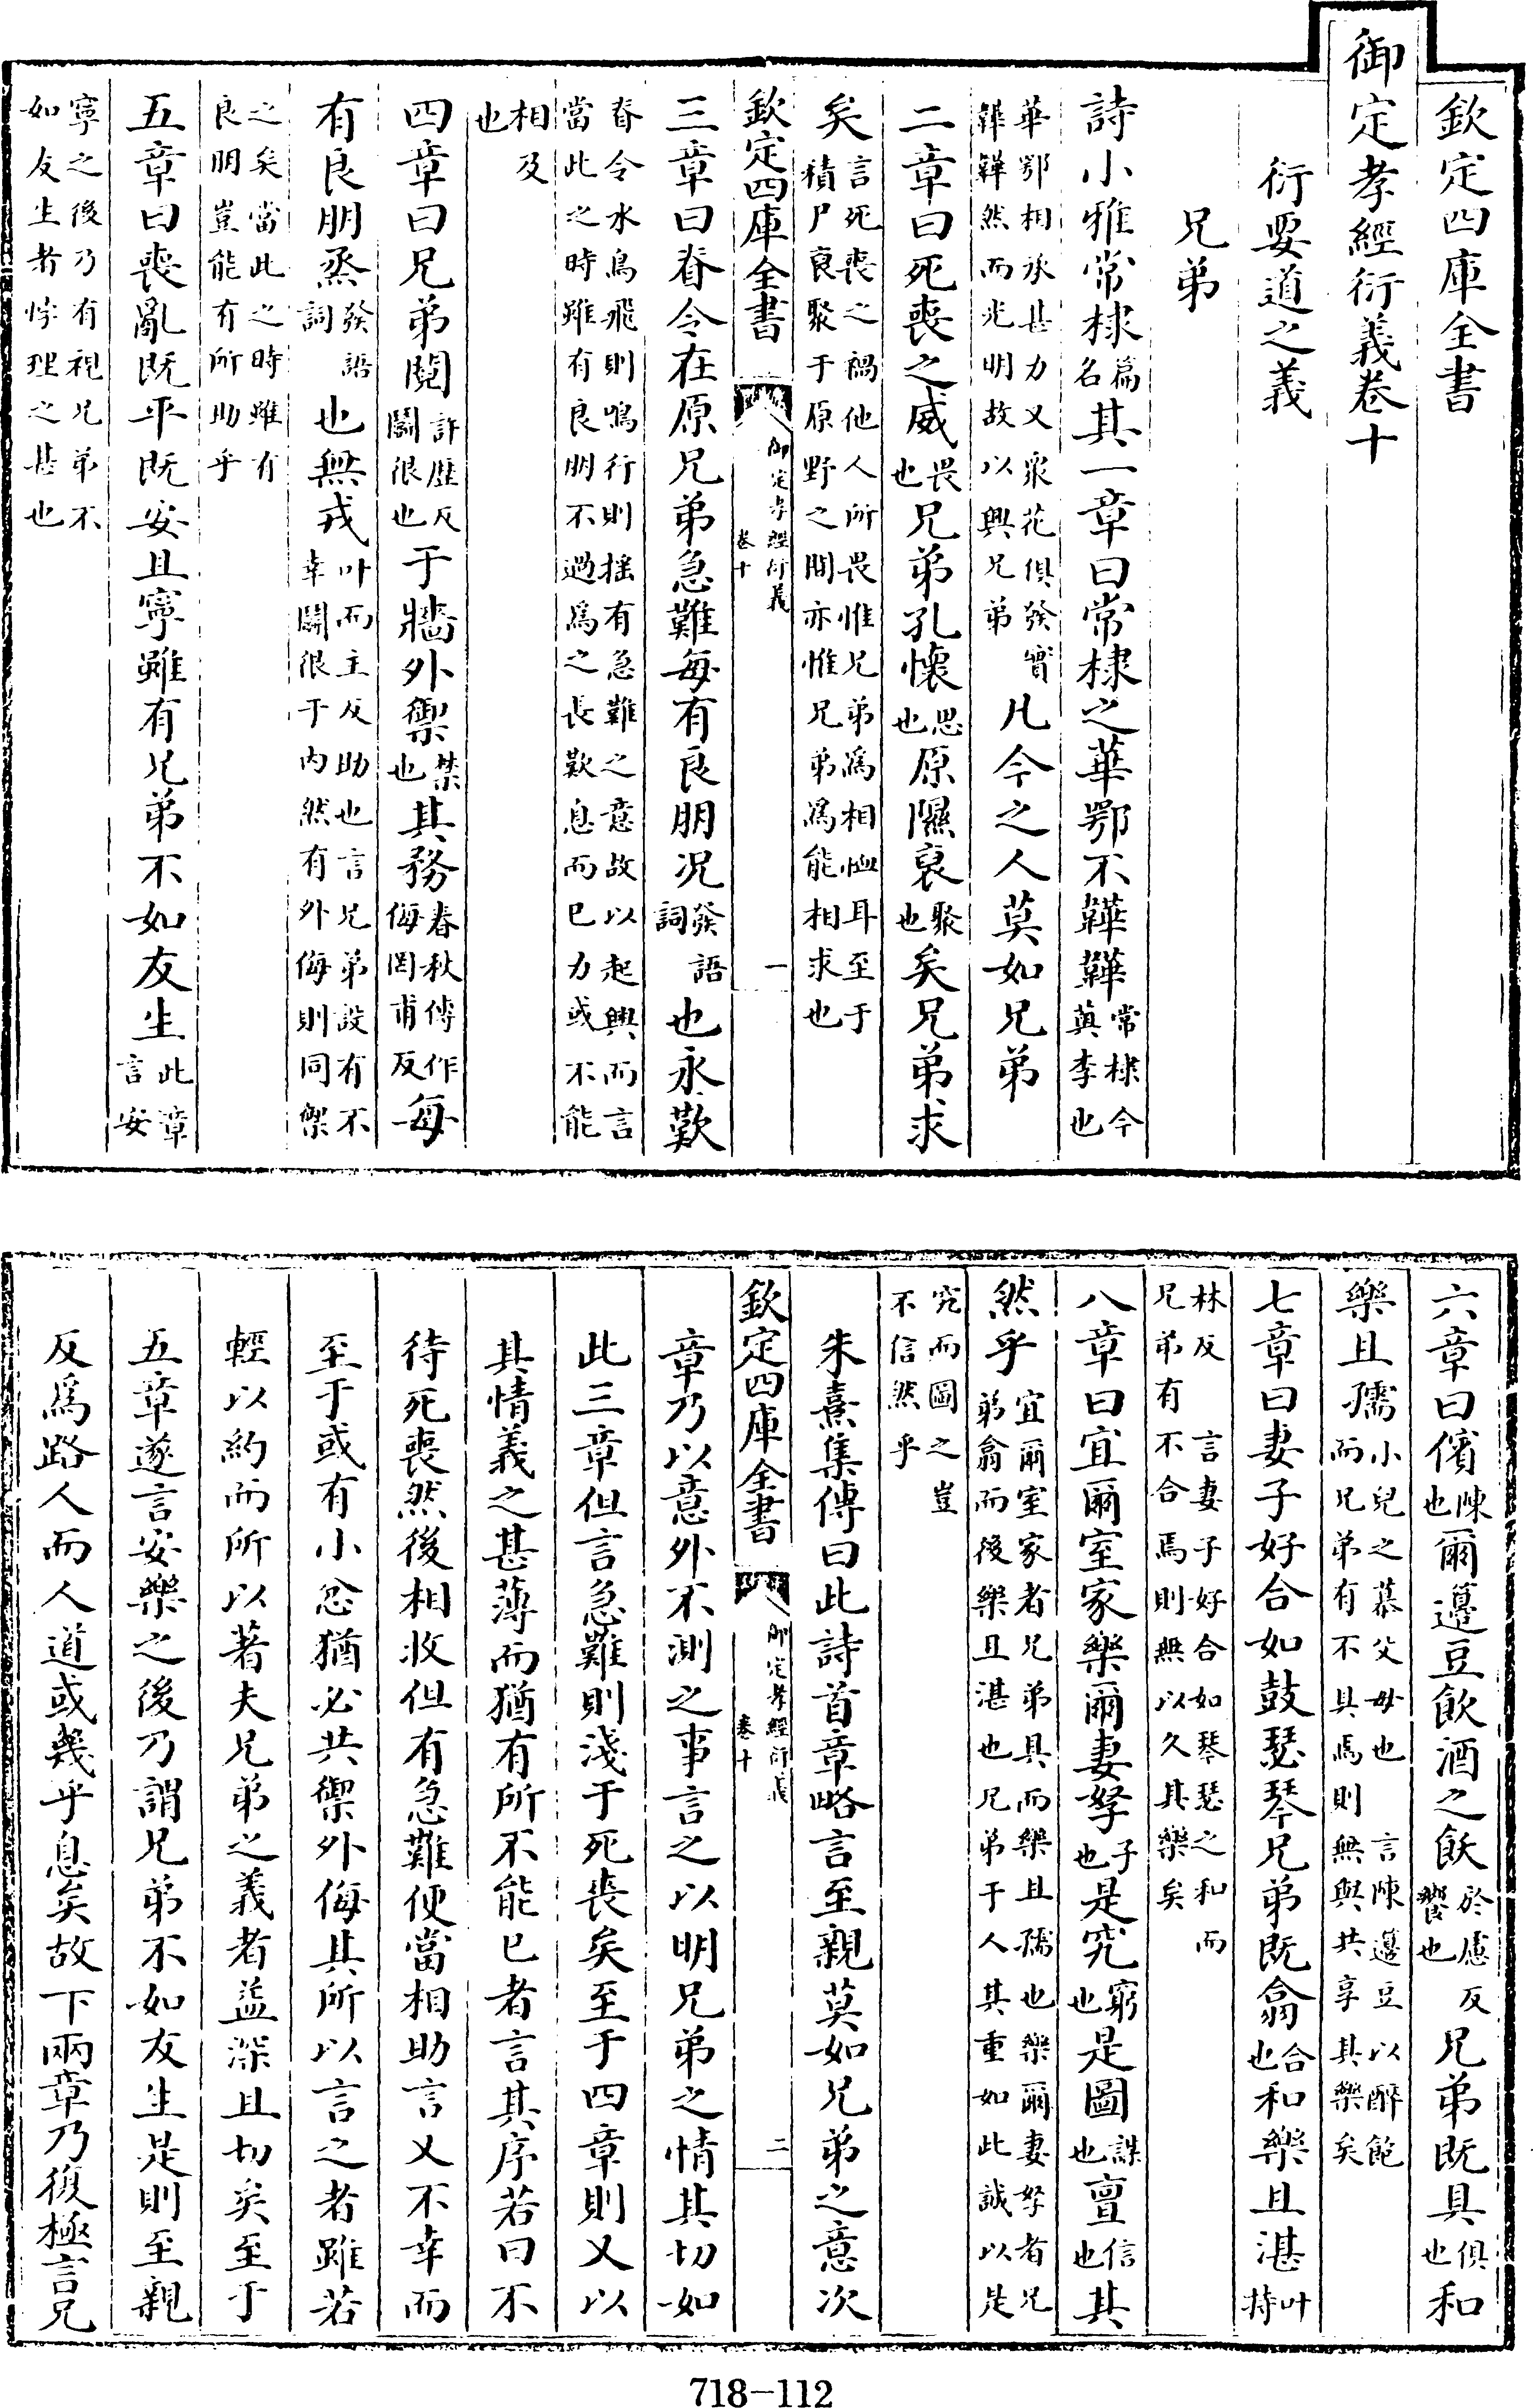 欽定四庫全書
御定孝經衍義卷十
衍要道之義
兄弟
詩小雅常棣篇名其一章曰常棣之華鄂不韡韡常棣今薁李也
華鄂相承甚力又衆花俱發實韡韡然而光明故以興兄弟凡今之人莫如兄弟
二章曰死喪之威畏也兄弟孔懷思也原隰裒聚也矣兄弟求
矣言死喪之禍他人所畏惟兄弟爲相恤耳至于積尸裒聚于原野之間亦惟兄弟爲能相求也
欽定四庫全書 御定孝經衍義 卷十 一
三章曰脊令在原兄弟急難每有良朋况發語詞也永歎
脊令水鳥飛則鳴行則揺有急難之意故以起興而言當此之時雖有良朋不過爲之長歎息而已力或不能
相及也
四章曰兄弟鬩許歷反鬭很也于牆外禦禁也其務春秋傳作侮罔甫反每
有良朋烝發語詞也無戎叶而主反助也言兄弟設有不幸鬭很于内然有外侮則同禦
之矣當此之時雖有良朋豈能有所助乎
五章曰喪亂既平既安且寧雖有兄弟不如友生此章言安
寧之後乃有視兄弟不如友生者悖理之甚也
六章曰儐陳也爾籩豆飲酒之飫於慮反饗也兄弟既具俱也和
樂且孺小兒之慕父母也言陳籩豆以醉飽而兄弟有不具焉則無與共享其樂矣
七章曰妻子好合如鼓瑟琴兄弟既翕合也和樂且湛叶持
林反言妻子好合如琴瑟之和而兄弟有不合焉則無以久其樂矣
八章曰宜爾室家樂爾妻孥子也是究窮也是圖謀也亶信也其
然乎宜爾室家者兄弟具而樂且孺也樂爾妻孥者兄弟翕而後樂且湛也兄弟于人其重如此誠以是
究而圖之豈不信然乎
朱熹集傳曰此詩首章略言至親莫如兄弟之意次
欽定四庫全書 御定孝經衍義 卷十 二
章乃以意外不測之事言之以明兄弟之情其切如
此三章但言急難則淺于死喪矣至于四章則又以
其情義之甚薄而猶有所不能已者言其序若曰不
待死喪然後相收但有急難便當相助言又不幸而
至于或有小忿猶必共禦外侮其所以言之者雖若
輕以約而所以著夫兄弟之義者益深且切矣至于
五章遂言安樂之後乃謂兄弟不如友生是則至親
反爲路人而人道或幾乎息矣故下兩章乃復極言兄
718-112